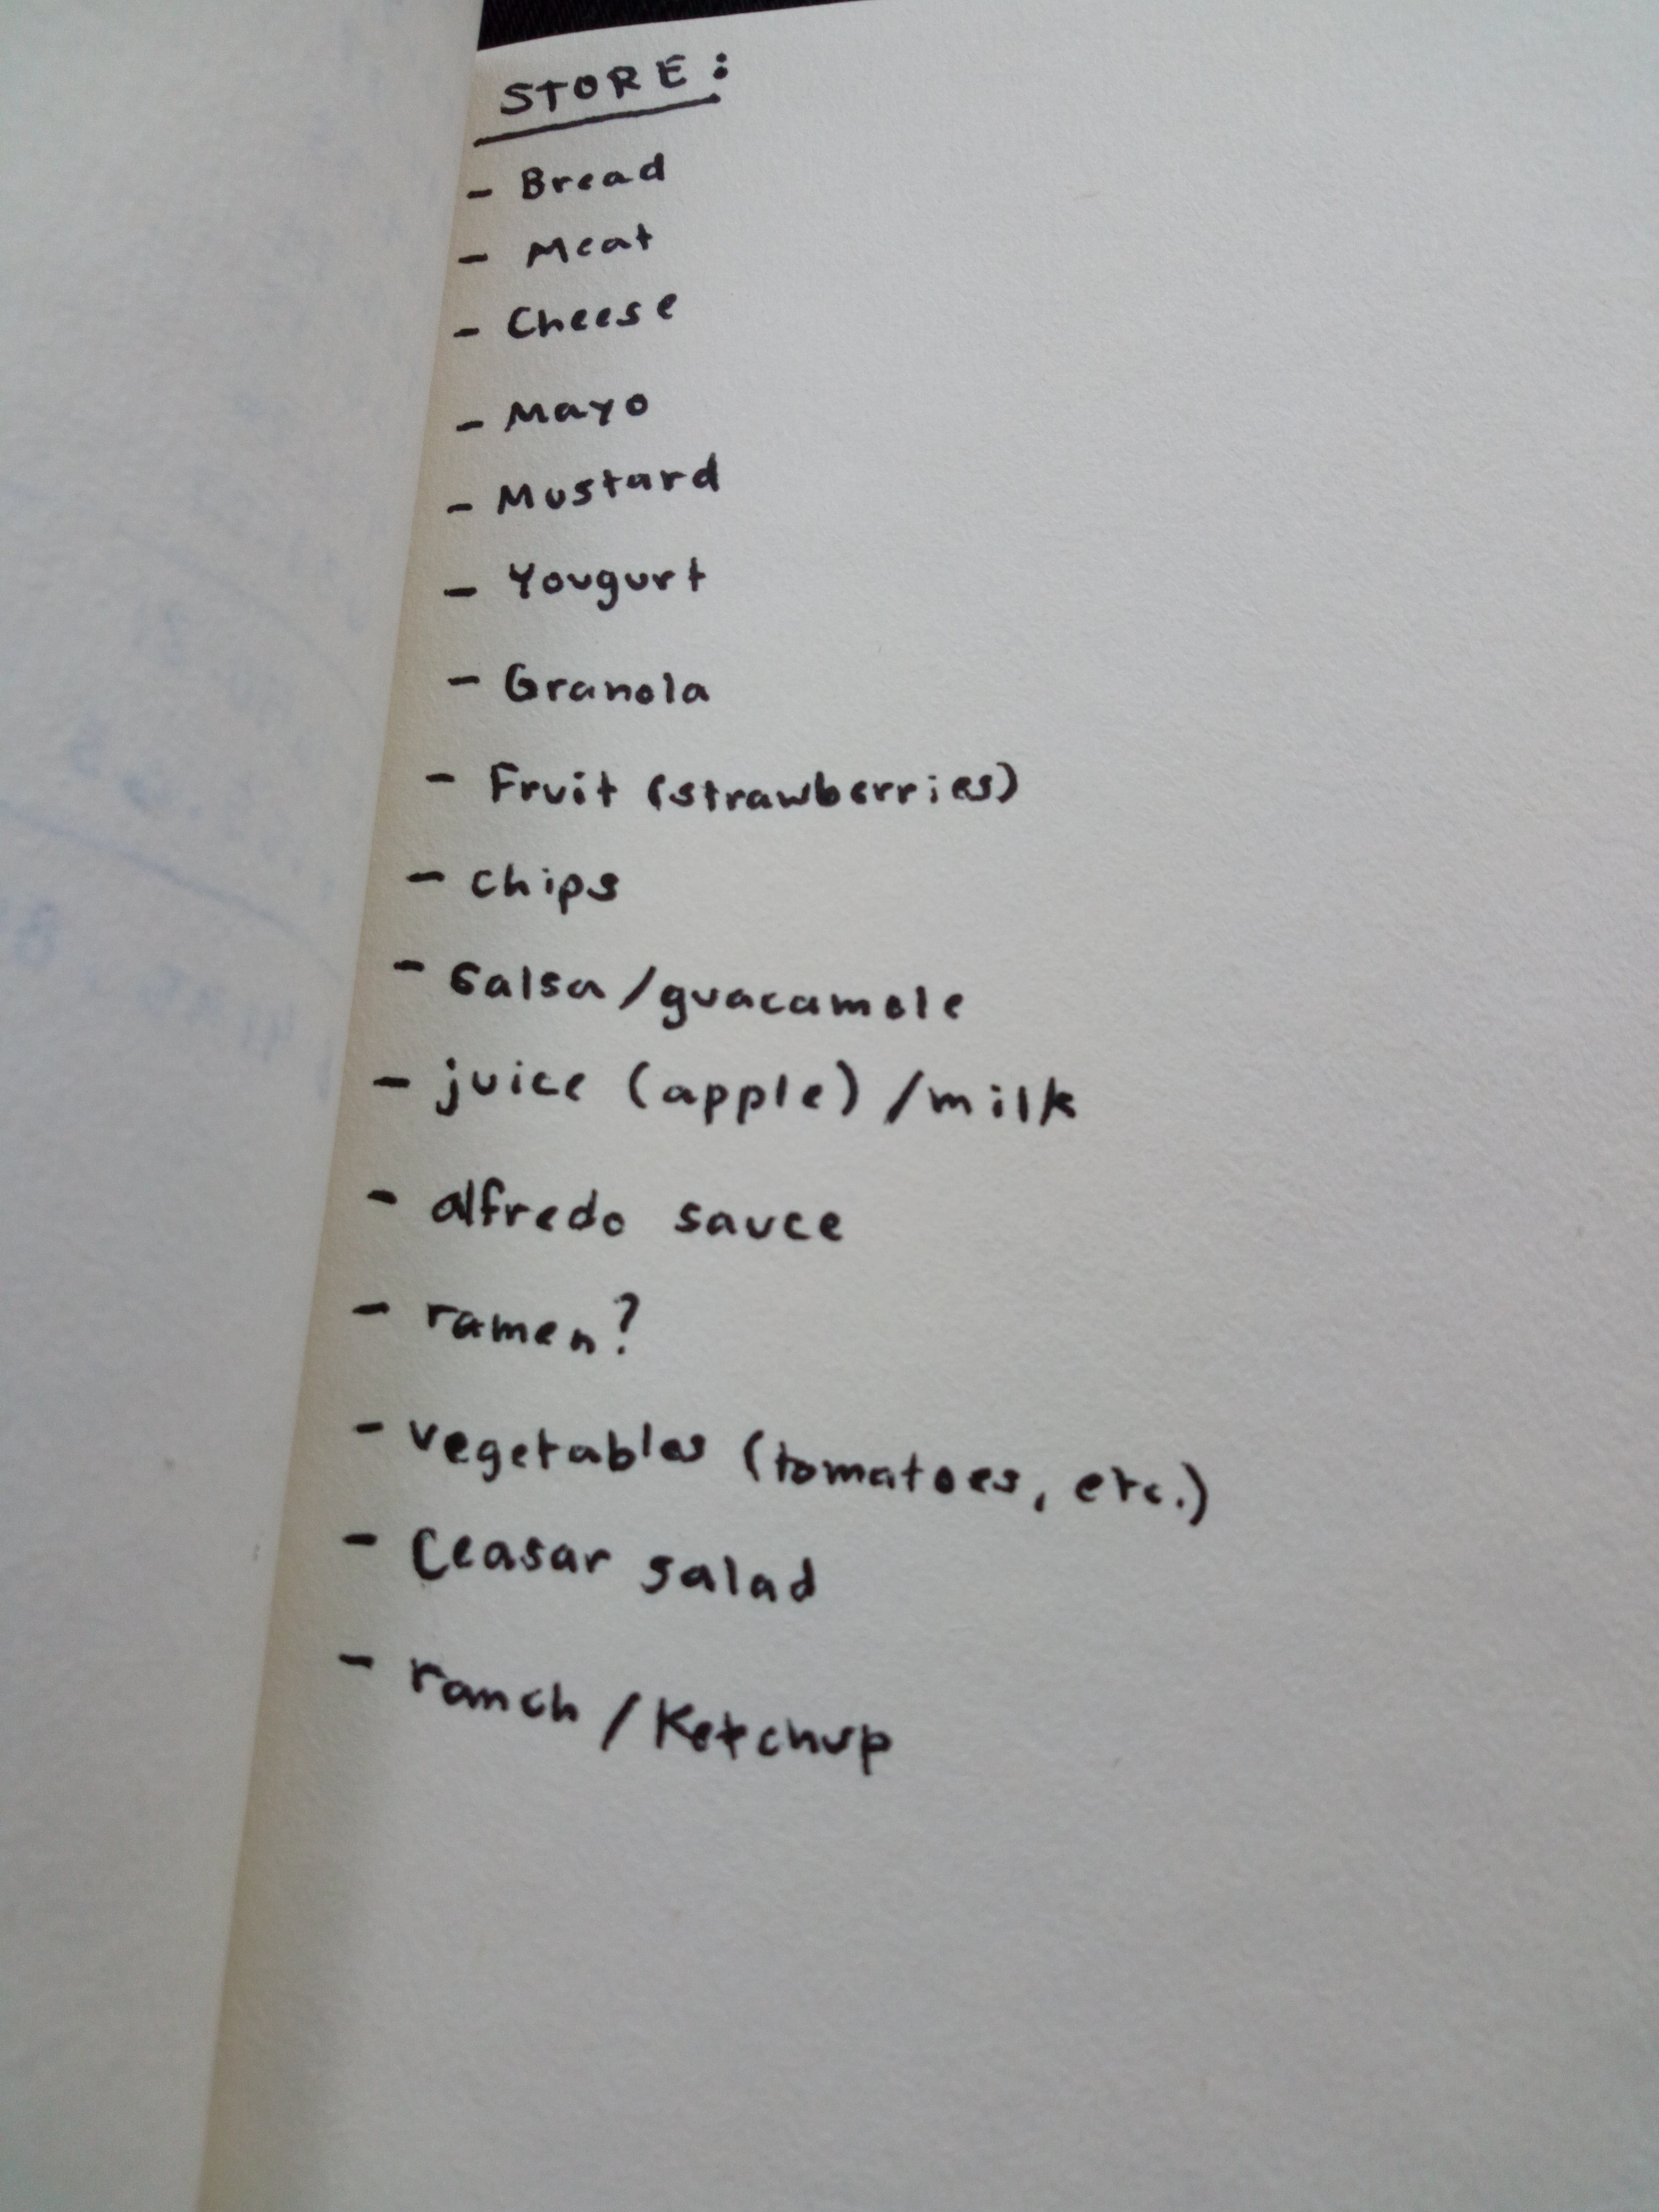 STORE:
- Bread
- Meat
- Cheese
- Mayo
- Mustard
- Yougurt
- Granola
- Fruit (strawberries)
- chips
- Salsa/guacamole
- juice (apple)/milk
- alfredo sauce
- ramen?
- vegetables (tomatoes, etc.)
- Ceasar salad
- ranch/Ketchup